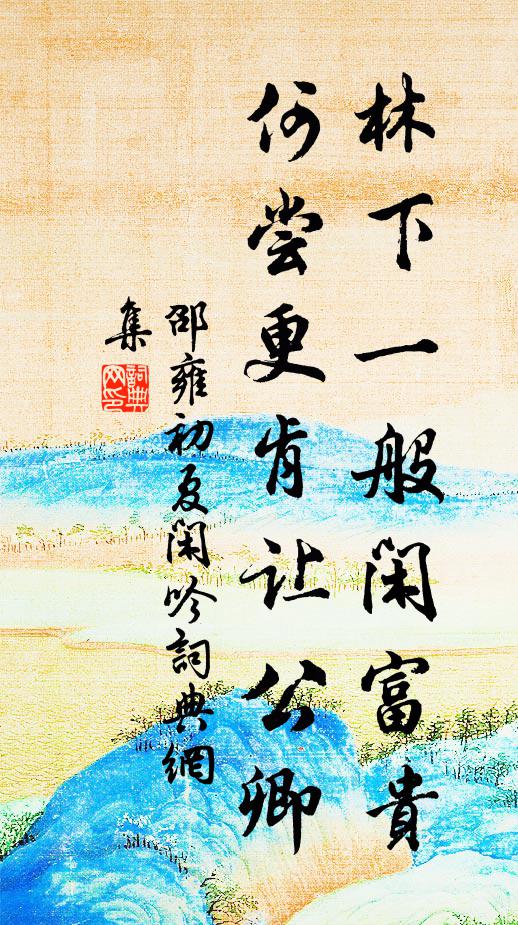 林下一般闲富貴
何尝更肯让公卿
邵雍初夏闲吟詞典網
集
詞典网印